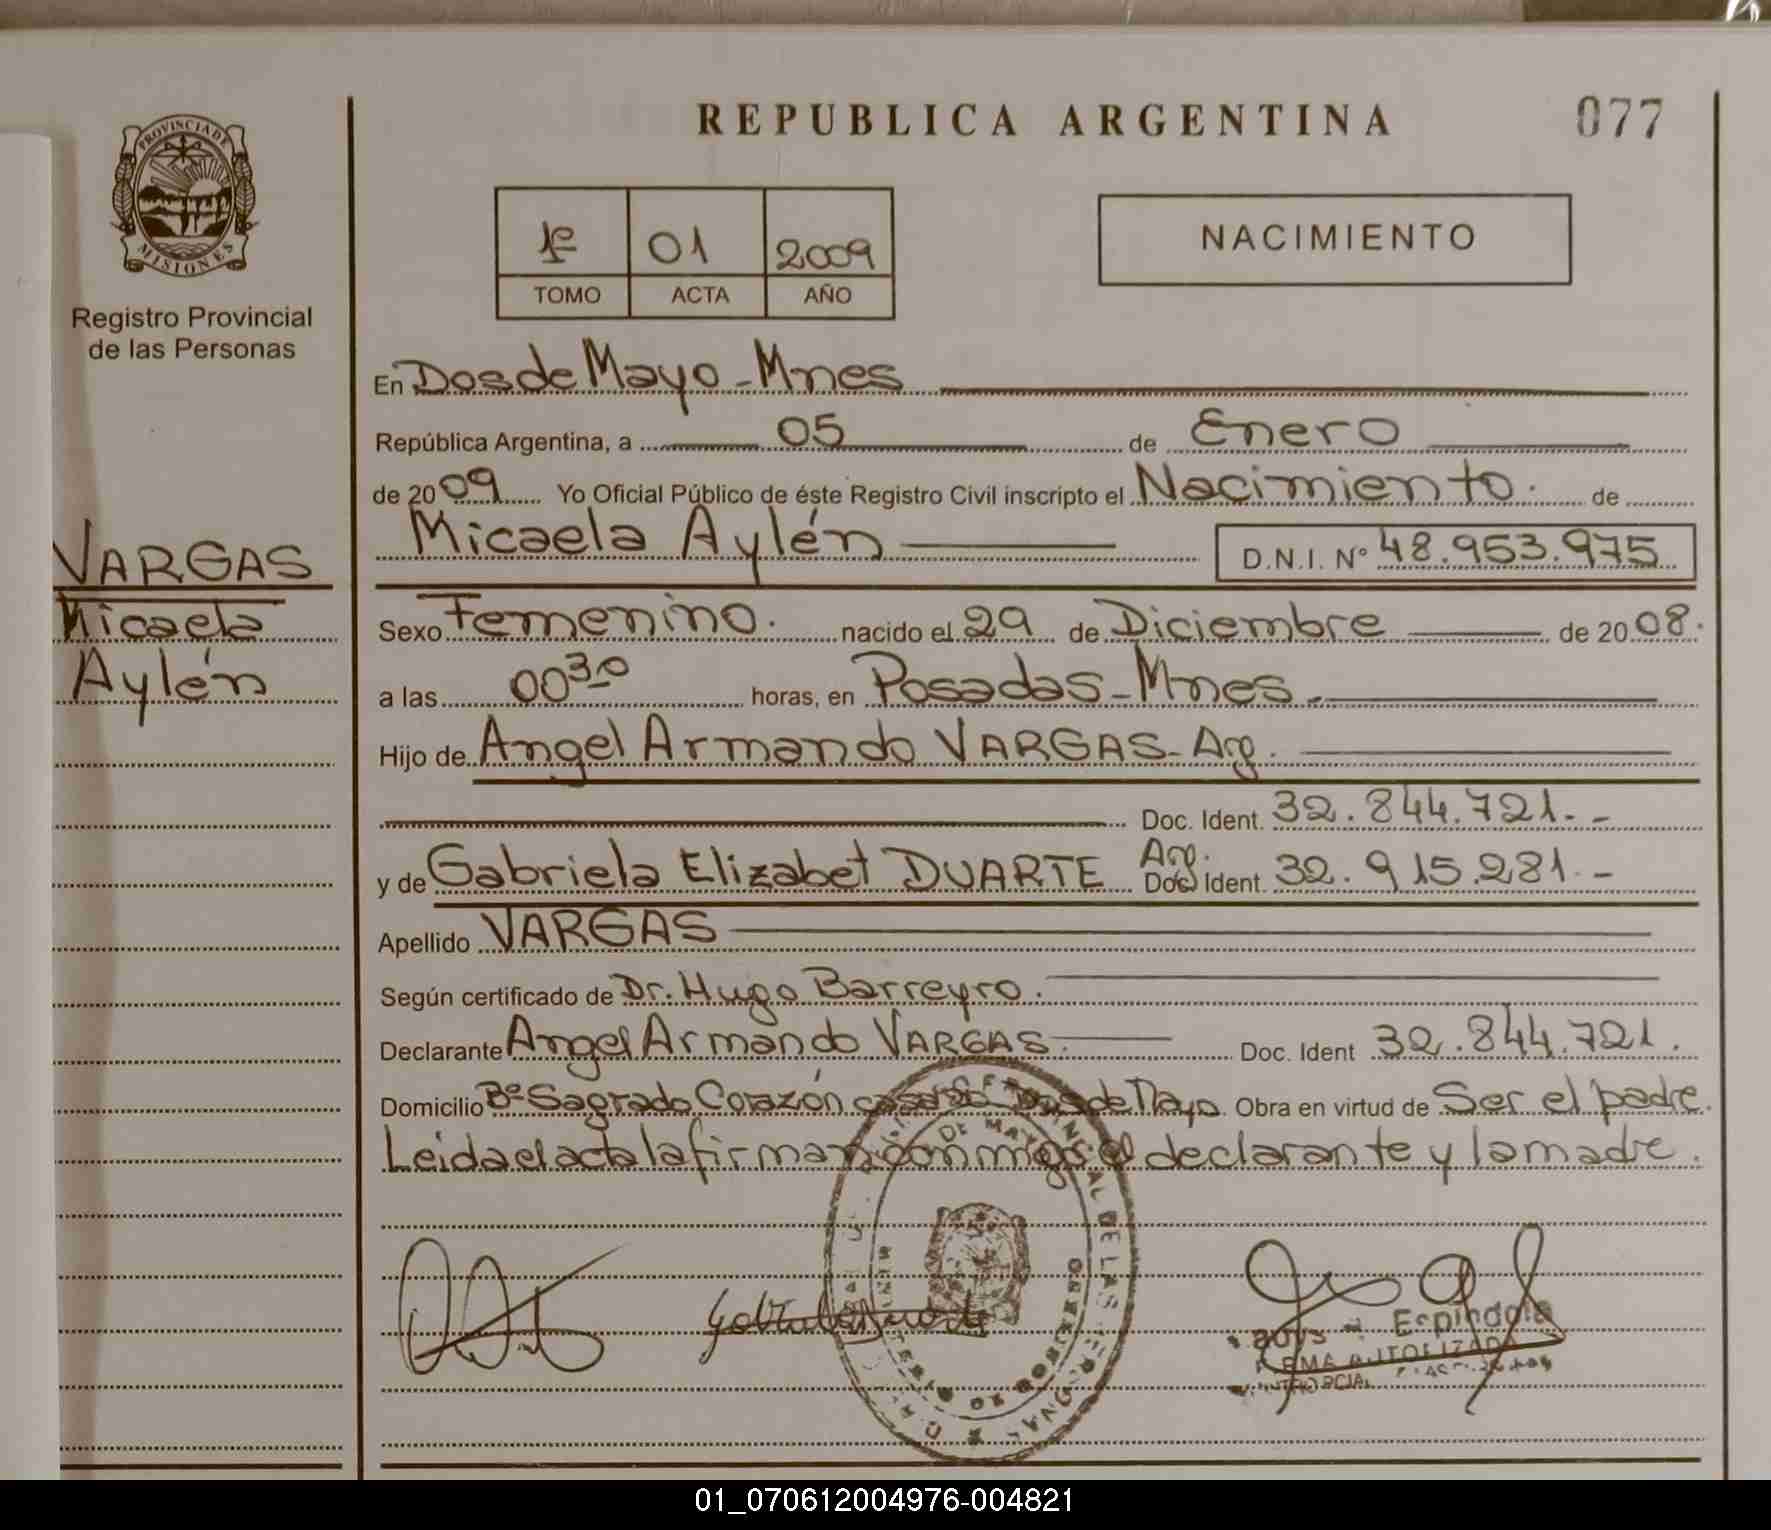 REPUBLICA ARGENTINA
077
PROVINCIA DE
MISIONES
Registro Provincial
de las Personas
1º 01 2009
TOMO ACTA AÑO
NACIMIENTO
En Dos de Mayo - Mnes
República Argentina, a 05 de Enero
de 2009 Yo Oficial Público de éste Registro Civil inscripto el Nacimiento. de
Micaela Aylén D.N.I. Nº 48.953.975
VARGAS
Micaela
Aylén
Sexo Femenino. nacido el 29 de Diciembre de 2008.
a las 00 30 horas, en Posadas - Mnes.
Hijo de Angel Armando VARGAS - Arg.
Doc. Ident. 32.844.721.-
y de Gabriela Elizabet DUARTE Arg. Doc. Ident. 32.915.281.-
Apellido VARGAS
Según certificado de Dr. Hugo Barreyro.
Declarante Angel Armando VARGAS. Doc. Ident 32.844.721.
Domicilio Bº Sagrado Corazón casa Dos de Mayo. Obra en virtud de Ser el padre.
Leida el acta la firman conmigo el declarante y la madre.
DE MAYO
Espindola
FIRMA AUTORIZADA
01_070612004976-004821